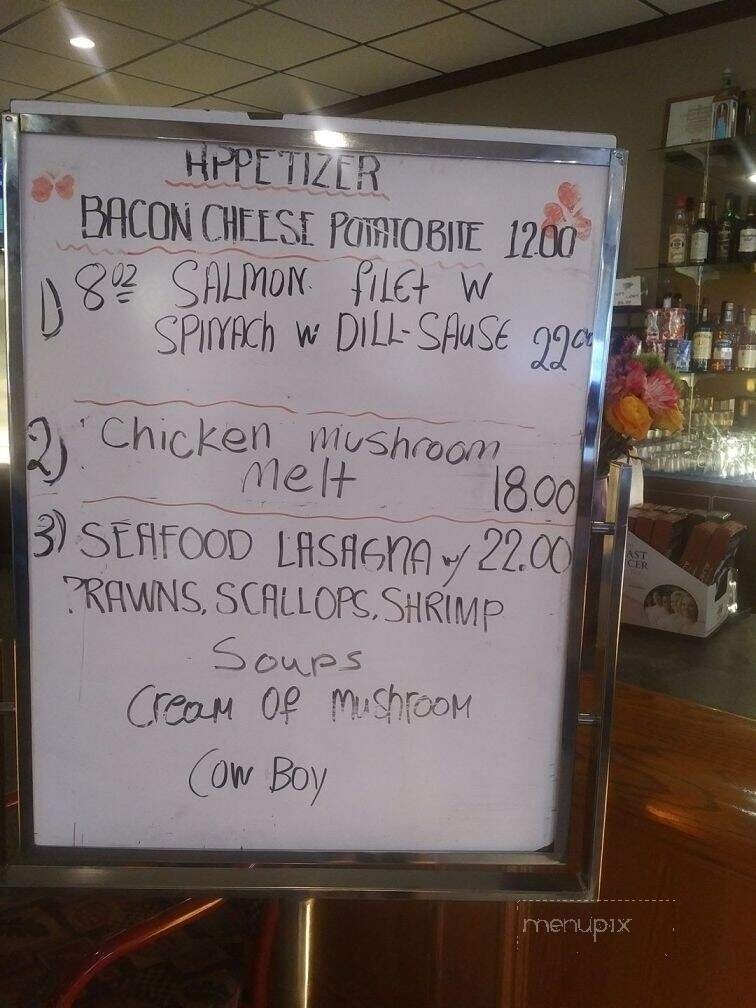 APPETIZER
BACON CHEESE POTATO BITE 12.00
1) 8oz SALMON. filet w
SPINACh w DILL-SAUSE 22.00
2) Chicken mushroom
melt 18.00
3) SEAFOOD LASAGNA w/ 22.00
PRAWNS, SCALLOPS, SHRIMP
Soups
Cream Of mushroom
Cow Boy
menupix